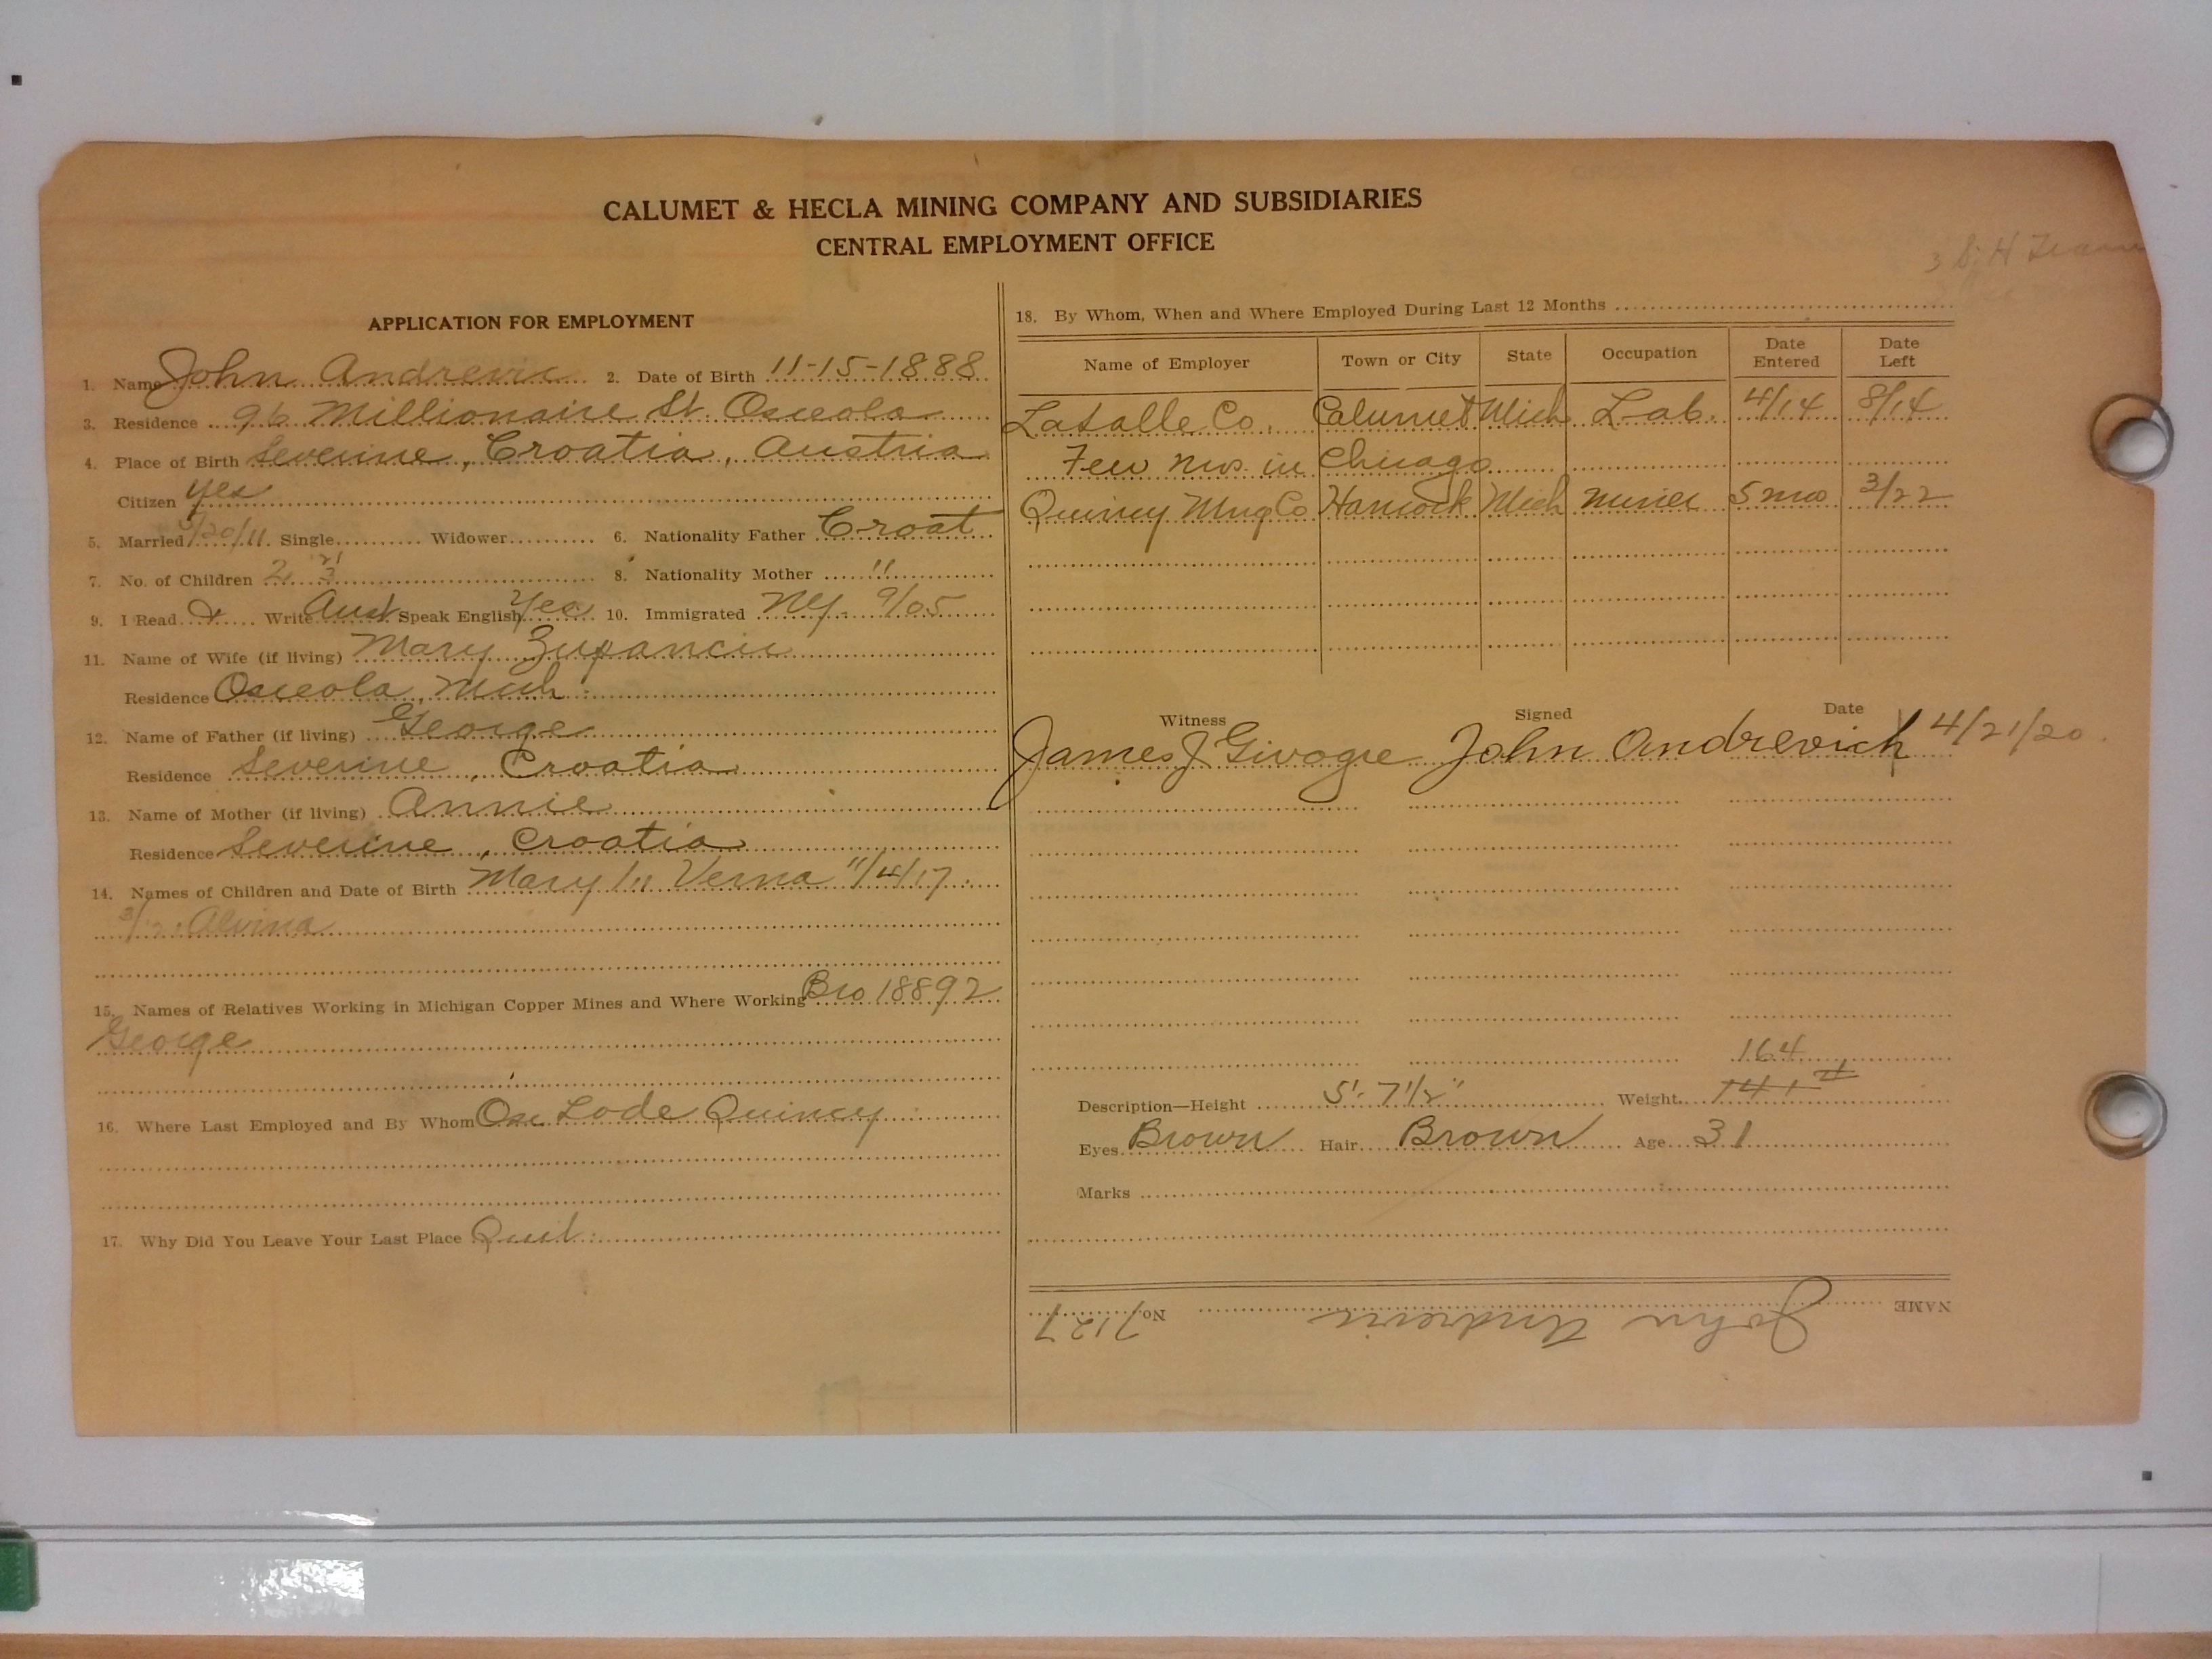 CALUMET & HECLA MINING COMPANY AND SUBSIDIARIES
CENTRAL EMPLOYMENT OFFICE
APPLICATION FOR EMPLOYMENT
1. Name John Andrevic 2. Date of Birth 11-15-1888
3. Residence 96 Millionaire St. Osceola
4. Place of Birth Severine, Croatia, Austria
Citizen yes
5. Married /20/11 Single Widower 6. Nationality Father Croat
7. No. of Children 2 3 21 8. Nationality Mother "
9. I Read & Write Aust Speak English Yes 10. Immigrated NY. 9/05
11. Name of Wife (if living) Mary Zupancic
Residence Osceola, Mich
12. Name of Father (if living) George
Residence Severine, Croatia
13. Name of Mother (if living) Annie
Residence Severine, Croatia
14. Names of Children and Date of Birth Mary Verna 11/4/17
Alvina
15. Names of Relatives Working in Michigan Copper Mines and Where Working Bro 18892
George
16. Where Last Employed and By Whom Osc Lode Quincy
17. Why Did You Leave Your Last Place Quit
18. By Whom, When and Where Employed During Last 12 Months
Name of Employer Town or City State Occupation Date Entered Date Left
LaSalle Co. Calumet Mich Lab. 4/14 8/14
Few mos. in Chicago
Quincy Mng Co Hancock Mich miner 5 mo 3/22
Witness Signed Date
James J John Andrevich 4/21/20
164
Description—Height 5'- 7 1/2" Weight 141
Eyes Brown Hair Brown Age 31
Marks
NAME John Andrevic No. 7127